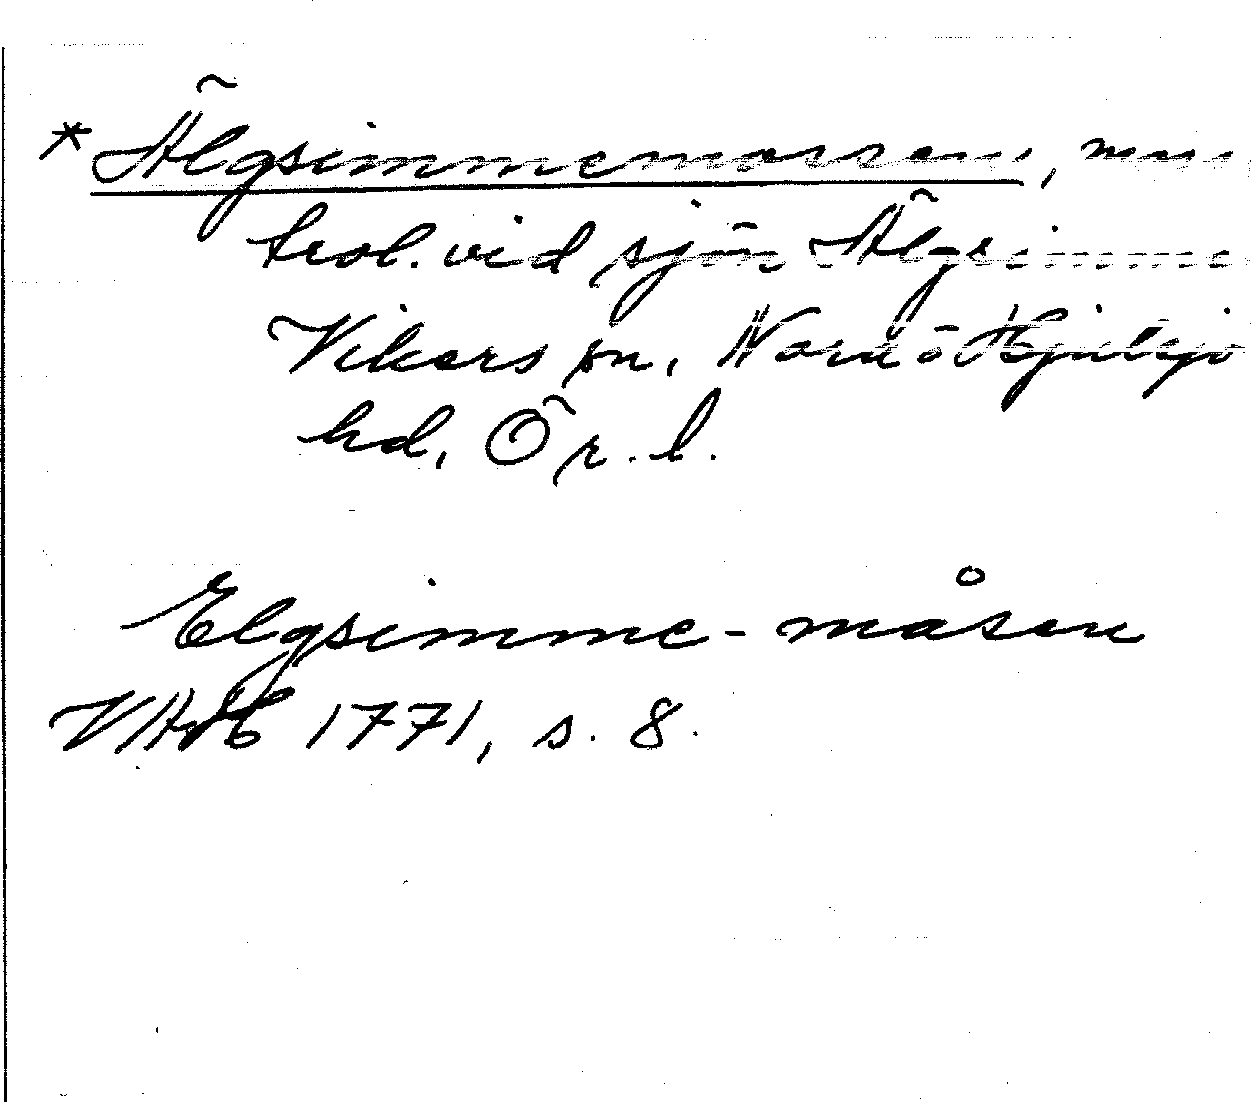 * Älgsimmemossen, mosse
trol. vid sjön Älgsimmen
Vikers sn, Nora o Hjulsjö
hd, Ör. l.
Elgsimme-måsen
1771, s. 8.